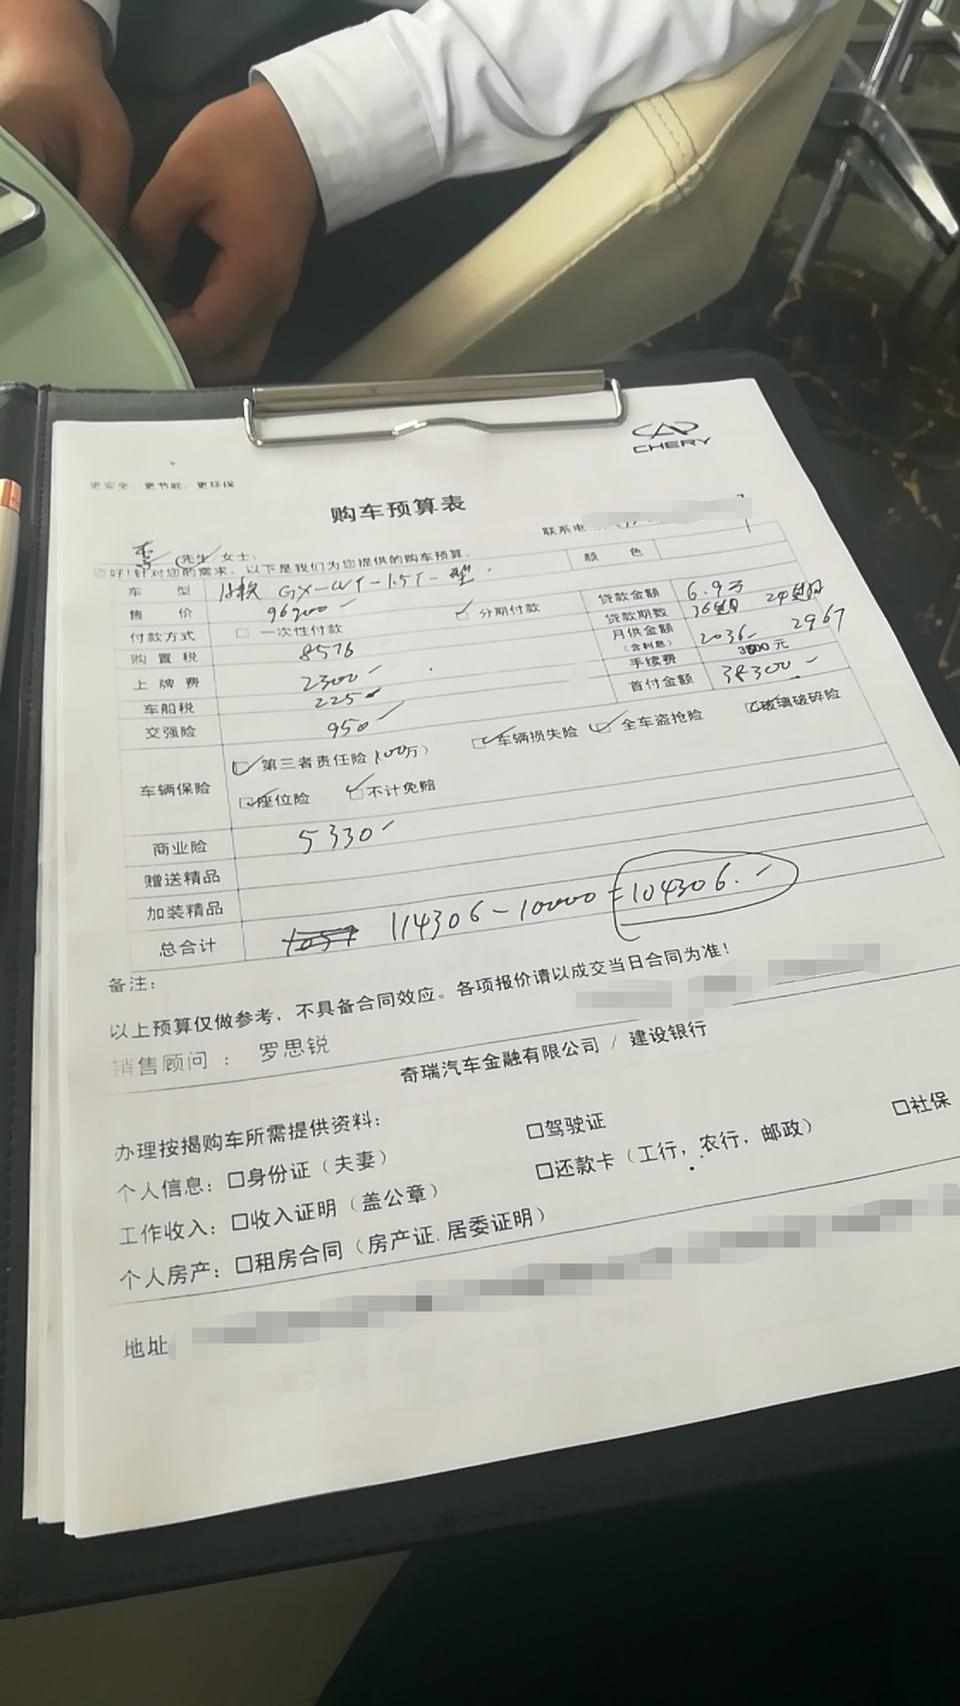 CHERY
更安全，更节能，更环保
购车预算表
李 (先生/女士：
联系电
您好！针对您的需求，以下是我们为您提供的购车预算。
颜 色
车 型 18款 GX-CVT-1.5T-型
售 价 96900
贷款金额 6.9万
付款方式 □ 一次性付款 □ 分期付款
贷款期数 36期 24期
购 置 税 8576
月供金额 (含利息) 2036 2967
上 牌 费 2300
手续费 3800元
车船税 225
首付金额 38300
交强险 950
车辆保险 □第三者责任险(100万) □车辆损失险 □全车盗抢险 □玻璃破碎险
□座位险 □不计免赔
商业险 5330
赠送精品
加装精品
总合计 114306-10000=104306.
备注：
以上预算仅做参考，不具备合同效应。各项报价请以成交当日合同为准！
销售顾问： 罗思锐
奇瑞汽车金融有限公司 / 建设银行
办理按揭购车所需提供资料：
个人信息：□身份证（夫妻） □驾驶证 □社保
工作收入：□收入证明（盖公章） □还款卡（工行，农行，邮政）
个人房产：□租房合同（房产证.居委证明）
地址